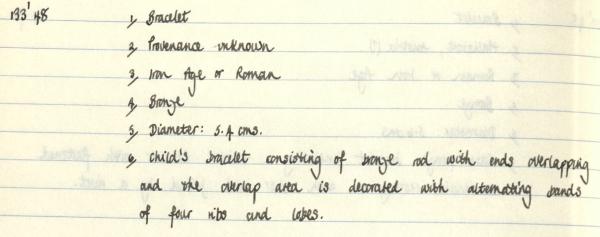 133' 48
1, Bracelet
2, Provenance unknown
3, Iron Age or Roman
4, Bronze
5, Diameter: 5.4 cms.
6, Child's bracelet consisting of bronze rod with ends overlapping
and the overlap area is decorated with alternating bands
of four ribs and lobes.